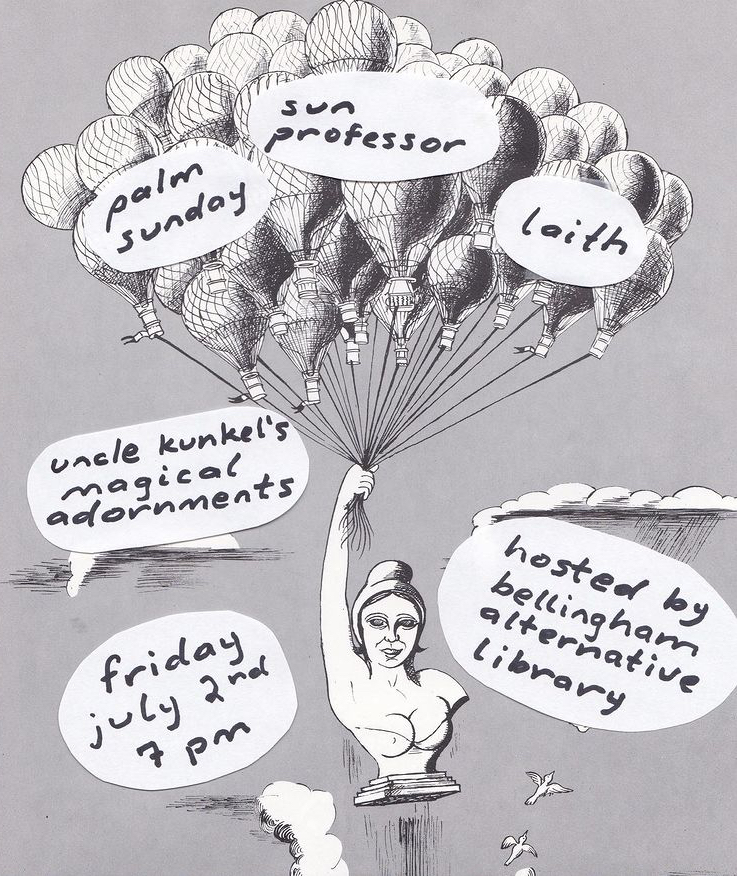 sun
professor
palm
sunday
laith
uncle kunkel's
magical
adornments
hosted by
bellingham
alternative
library
friday
july 2nd
7 pm